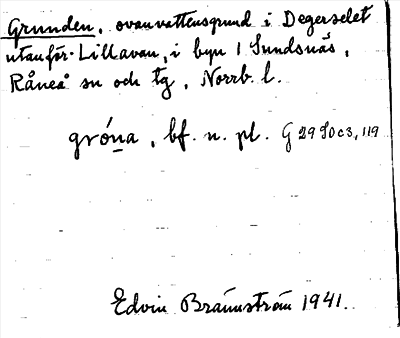 Grunden, ovanvattensgrund i Degerselet
utanför Lillavan, i byn 1 Sundsnäs,
Råneå sn och tg, Norrb. l.
gróna, bf. n. pl. G 29 S0c3, 119
Edvin Brännström 1941.